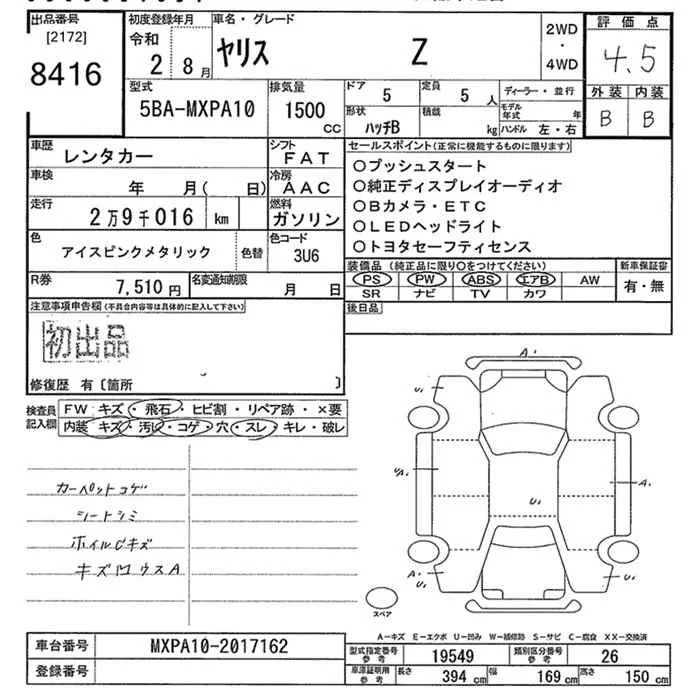 出品番号 初度登録年月 車名・グレード 評価点
[2172] 令和 2WD
8416 2 8月 ヤリス Z ・ 4.5
4WD
外装 内装
B B
型式 排気量 ドア 定員 ディーラー・並行
5BA-MXPA10 1500 CC 5 5人 モデル年式
形状 積載 ハンドル 左・右
ハッチB kg
車歴 レンタカー シフト FAT
車検 年 月( 日) 冷房 AAC
走行 2万9千016 km 燃料 ガソリン
色 アイスピンクメタリック 色替 色コード 3U6
R券 7,510円 名変通知期限 月 日
セールスポイント(正常に機能するものに限ります)
○プッシュスタート
○純正ディスプレイオーディオ
○Bカメラ・ETC
○LEDヘッドライト
○トヨタセーフティセンス
装備品(純正品に限り○をつけてください) 新車保証書
PS PW ABS エアB AW 有・無
SR ナビ TV カワ
後日品
注意事項申告欄(不具合内容等は具体的に記入して下さい)
初出品
修復歴 有〔箇所 〕
検査員記入欄 FW キズ・飛石・ヒビ割・リペア跡・×要
内装 キズ・汚レ・コゲ・穴・スレ・キレ・破レ
カーペットコゲ
シートシミ
ホイルCキズ
A¹
U₁
U₁
U/A₁
A₁
U₁
A₁
U₁
U₁
スペア
A-キズ E-エクボ U-凹み W-補修跡 S-サビ C-腐食 XX-交換済
車台番号 MXPA10-2017162
登録番号
型式指定番号参考 19549 類別区分番号参考 26
車庫証明用参考 長さ 394cm 幅 169cm 高さ 150cm